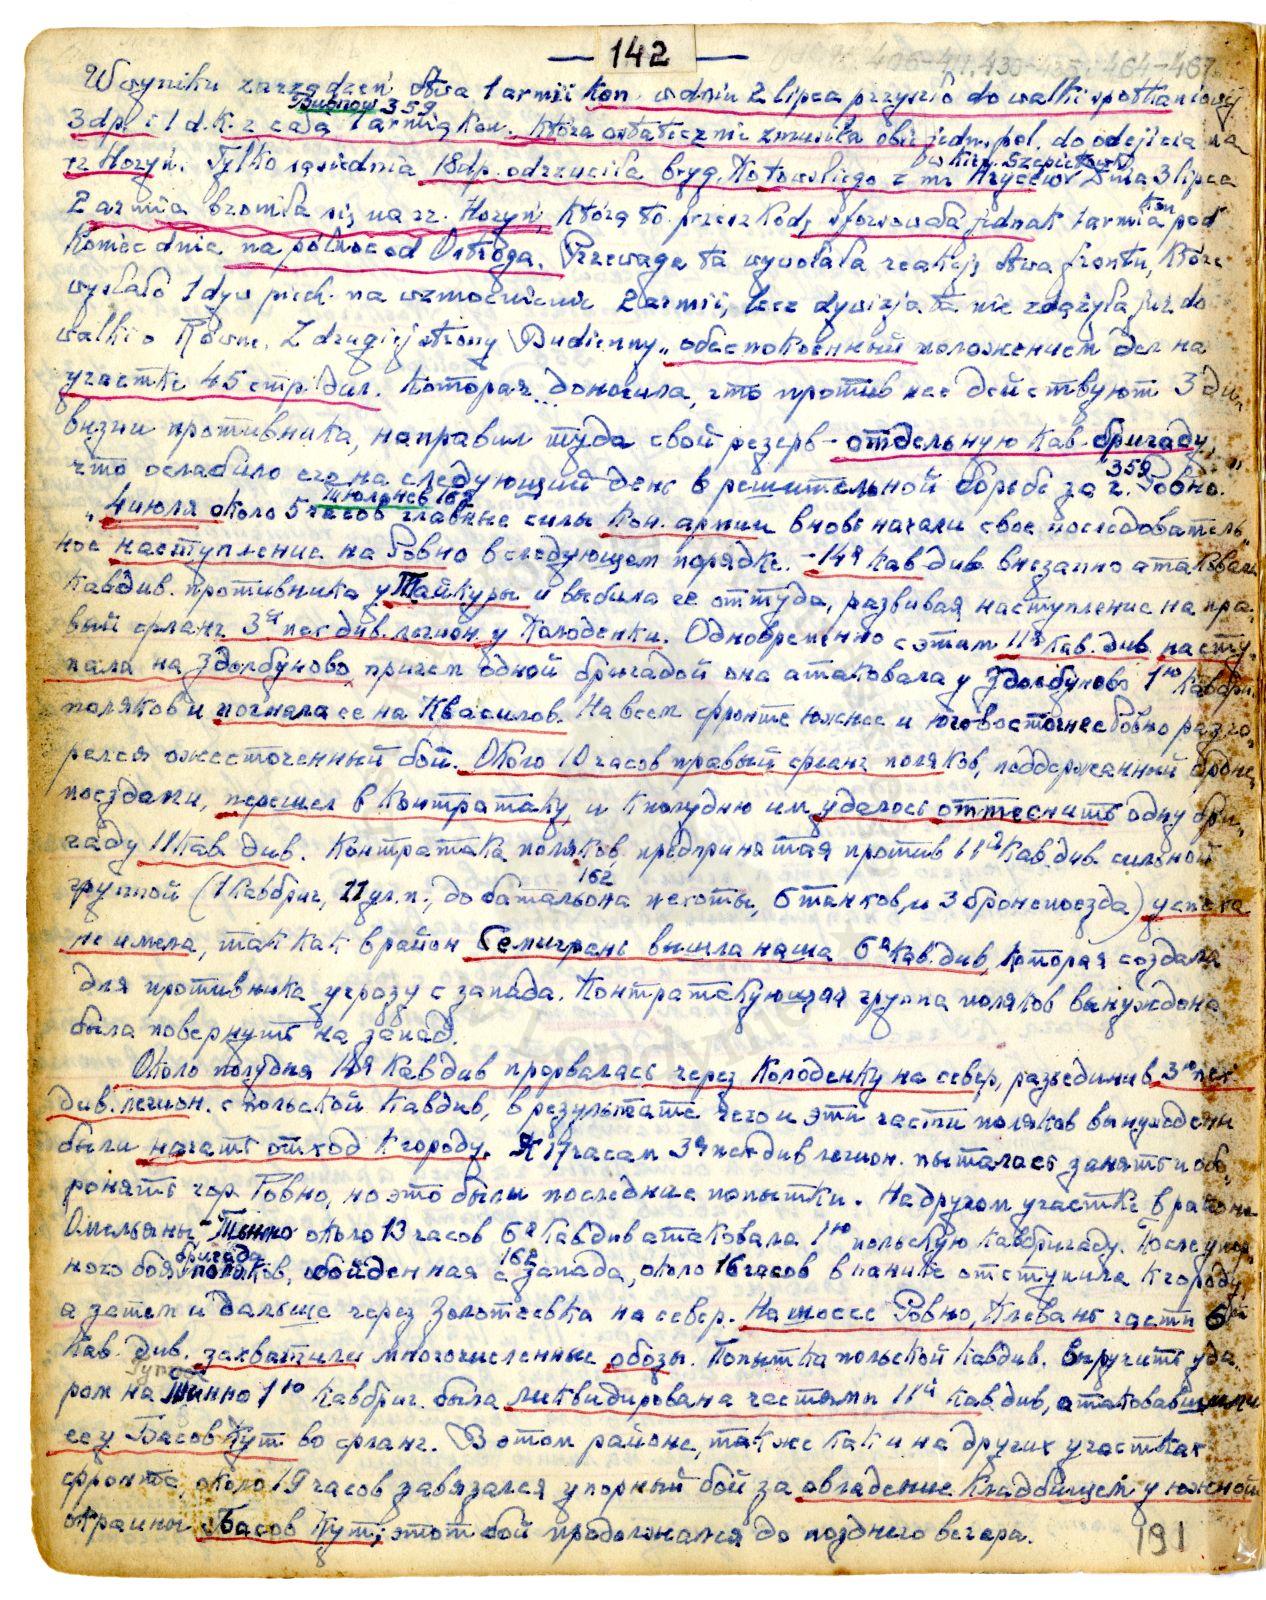 — 142 —
406-411, 430-435, 464-467
W wyniku zarządzeń dtwa 1 armii kon. w dniu 2 lipca przyszło do walki spotkaniowej
Bubnow 359
3 dp. i 1 d.k. z całą 1 armią kon. która ostatecznie zmusiła obie jedn. pol. do odejścia na
rz Horyń. Tylko sąsiednia 18dp. odrzuciła bryg. Kotowskiego z m. Hrycew Dnia 3 lipca
w kier. Szepietówki
2 armia broniła się na rz. Horyń, którą to przeszkodę sforsowała jednak 1 armia kon pod
koniec dnia na północ od Ostroga. Przewaga ta wywołała reakcję dtwa frontu, które
wysłało 1 dyw piech. na wzmocnienie 2 armii, lecz dywizja ta nie zdążyła już do
walki o Równe. Z drugiej strony Budienny „обеспокоенный положением дел на
участке 45 стр. див. которая... доносила, что против нее действуют 3 ди-
визии противника, направил туда свой резерв - отдельную кав. бригаду,
что ослабило его на следующий день в решительной борьбе за г. Ровно."
359
Тюленев 162
„4 июля около 5 часов главные силы Кон. армии вновь начали свое последователь-
ное наступление на Ровно в следующем порядке. - 14я кав. див. внезапно атаковала
кавдив. противника у Тайкуры и выбила ее оттуда, развивая наступление на пра-
вый фланг 3й пех див. легион. у Колоденки. Одновременно с этим 11я кав. див. насту-
пала на Здолбуново, причем одной бригадой она атаковала у Здолбуново 1ю кавбри.
поляков и погнала ее на Квасилов. На всем фронте южнее и юговосточнее Ровно разго-
релся ожесточенный бой. Около 10 часов правый фланг поляков, поддержанный броне-
поездами, перешел в контратаку, и к полудню им удалось оттеснить одну бри-
гаду 11 кав. див. Контратака поляков предпринятая против 11й кав. див. сильной
группой (1 кавбриг, 21 ул. п., до батальона пехоты, 6 танков, и 3 бронепоезда) успеха
162
не имела, так как в район Семигране вышла наша 6я кав. див, которая создала
для противника угрозу с запада. Контратакующая группа поляков вынуждена
была повернуть на запад.
Около полудня 14я кавдив прорвалась через Колоденку на север, разъединив 3ю пех
див. легион. с польской кавдив, в результате чего и эти части поляков вынуждены
были начать отход к городу. К 17 часам 3я пех див легион. пыталась занять и обо-
ронять гор. Ровно, но это были последние попытки. На другом участке в районе
Омельяны - Тынно около 13 часов 6я кавдив атаковала 1ю польскую кавбригаду. После упор-
ного боя бригада поляков, обойденная с запада, около 16 часов в панике отступила к городу
162
а затем и дальше через Золотеевка на север. На шоссе Ровно, Клевань части 6й
кав. див. захватили многочисленные обозы. Попытка польской кавдив. выручить уда-
ром на Тынно 1ю кавбриг. была ликвидирована частями 11й кавдив, атаковавшими
ее у Басов Кут во фланг. В этом районе, также как и на других участках
фронта, около 19 часов завязался упорный бой за овладение Кладбищем у южной
окраины Басов Кут; этот бой продолжался до позднего вечера.
191